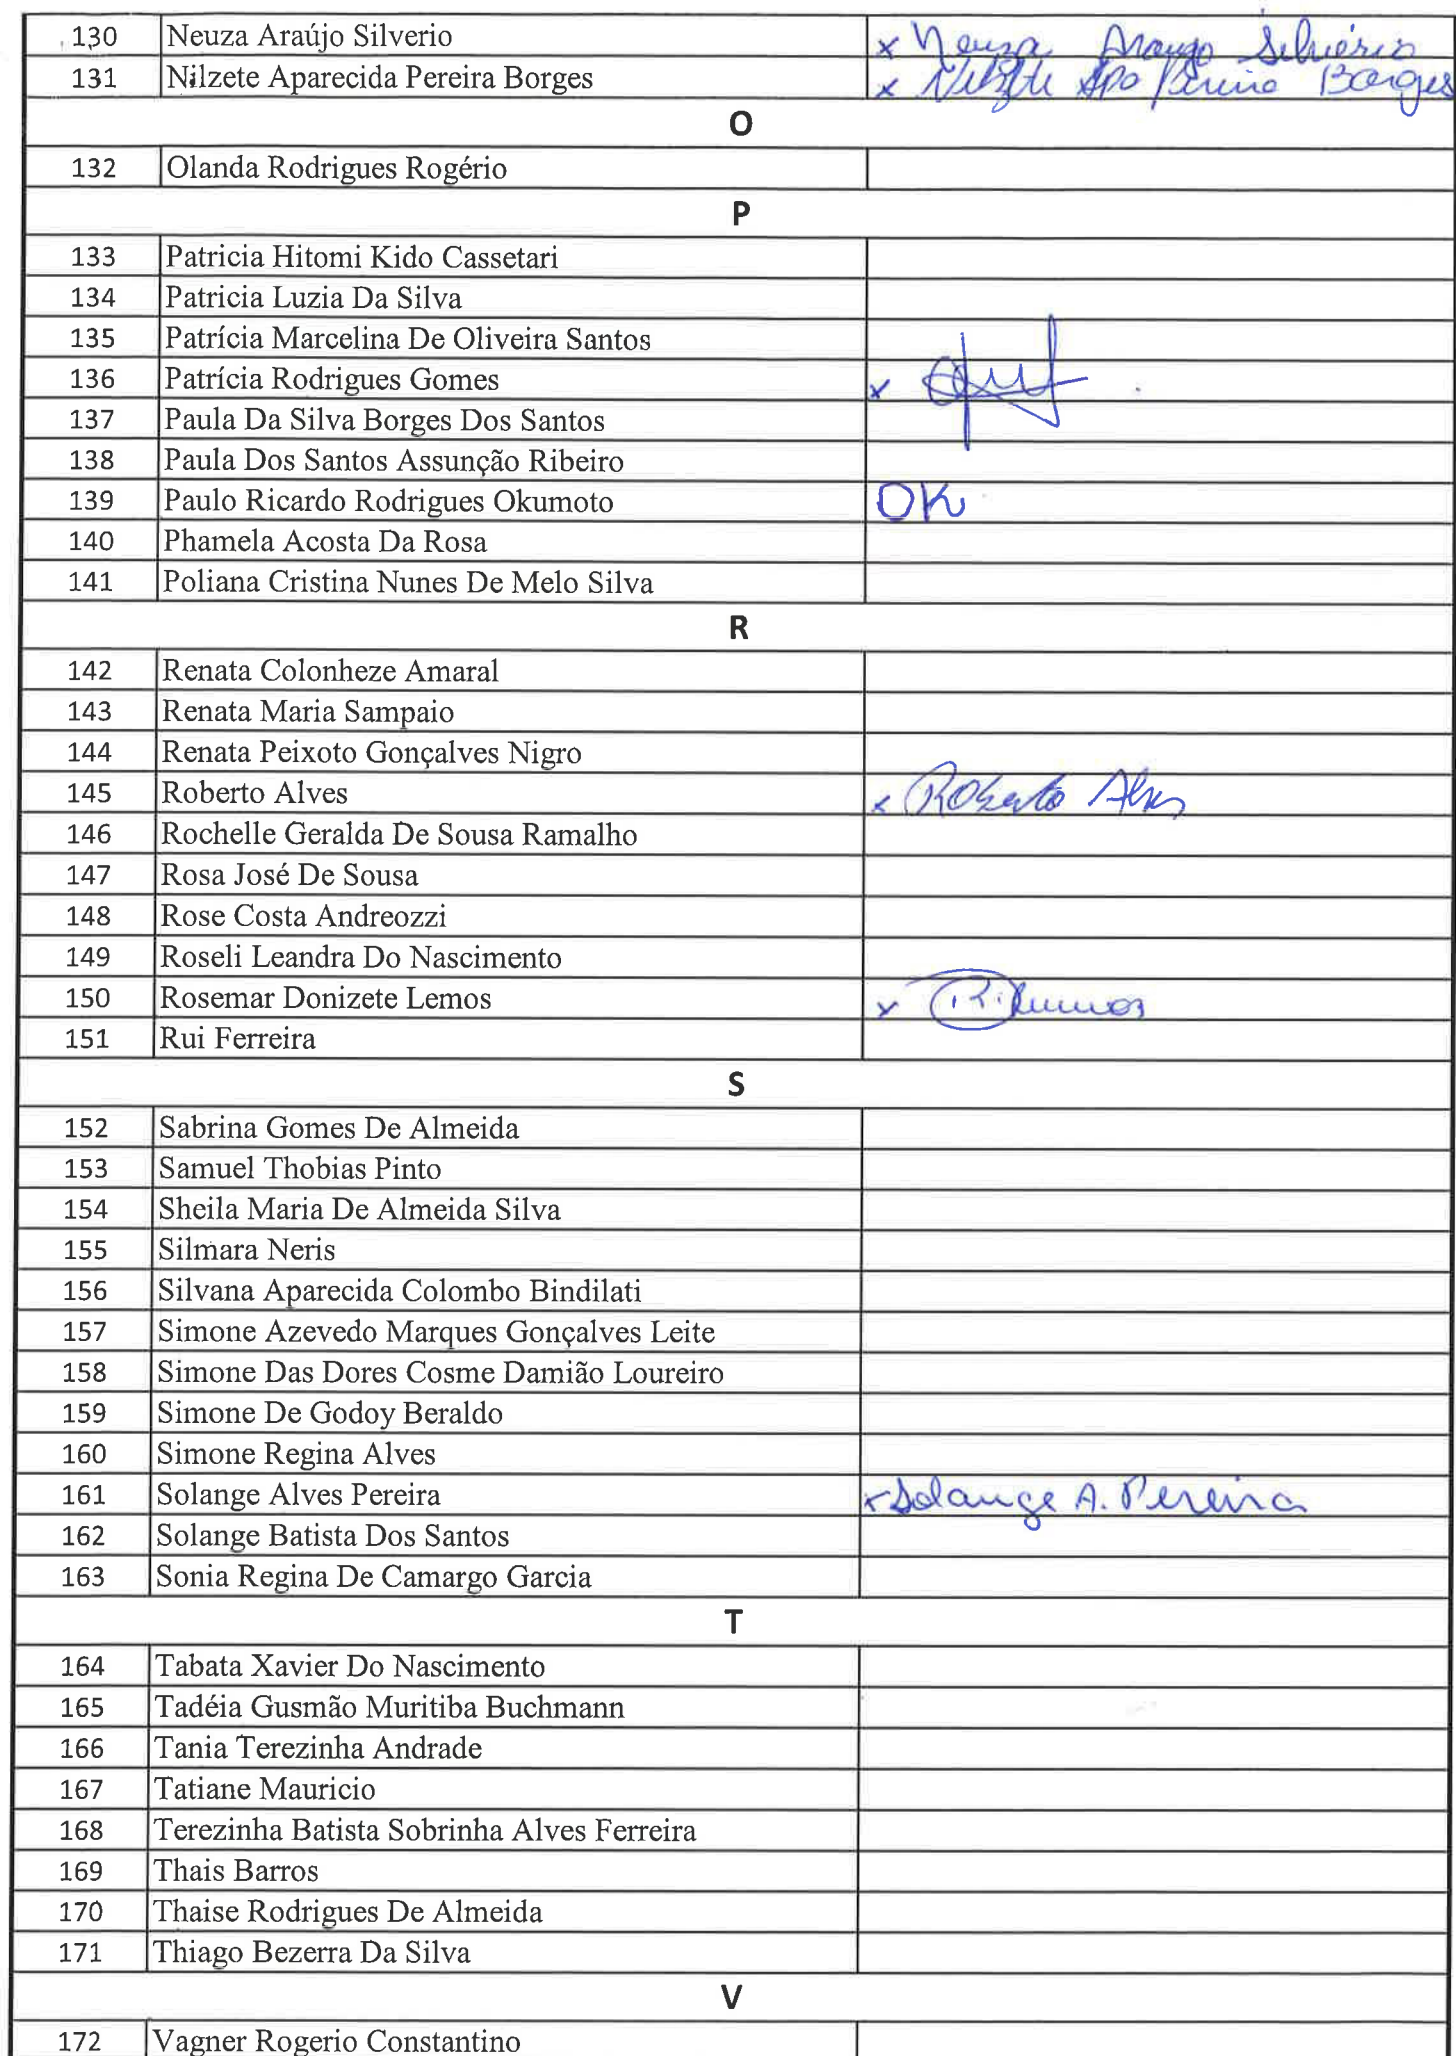 130 Neuza Araújo Silverio x Neuza Araujo Silvério
131 Nilzete Aparecida Pereira Borges x Nilzete Apa Pereira Borges
O
132 Olanda Rodrigues Rogério
P
133 Patricia Hitomi Kido Cassetari
134 Patricia Luzia Da Silva
135 Patrícia Marcelina De Oliveira Santos
136 Patrícia Rodrigues Gomes x
137 Paula Da Silva Borges Dos Santos
138 Paula Dos Santos Assunção Ribeiro
139 Paulo Ricardo Rodrigues Okumoto OK
140 Phamela Acosta Da Rosa
141 Poliana Cristina Nunes De Melo Silva
R
142 Renata Colonheze Amaral
143 Renata Maria Sampaio
144 Renata Peixoto Gonçalves Nigro
145 Roberto Alves x Roberto Alves
146 Rochelle Geralda De Sousa Ramalho
147 Rosa José De Sousa
148 Rose Costa Andreozzi
149 Roseli Leandra Do Nascimento
150 Rosemar Donizete Lemos x R. Lemos
151 Rui Ferreira
S
152 Sabrina Gomes De Almeida
153 Samuel Thobias Pinto
154 Sheila Maria De Almeida Silva
155 Silmara Neris
156 Silvana Aparecida Colombo Bindilati
157 Simone Azevedo Marques Gonçalves Leite
158 Simone Das Dores Cosme Damião Loureiro
159 Simone De Godoy Beraldo
160 Simone Regina Alves
161 Solange Alves Pereira x Solange A. Pereira
162 Solange Batista Dos Santos
163 Sonia Regina De Camargo Garcia
T
164 Tabata Xavier Do Nascimento
165 Tadéia Gusmão Muritiba Buchmann
166 Tania Terezinha Andrade
167 Tatiane Mauricio
168 Terezinha Batista Sobrinha Alves Ferreira
169 Thais Barros
170 Thaise Rodrigues De Almeida
171 Thiago Bezerra Da Silva
V
172 Vagner Rogerio Constantino